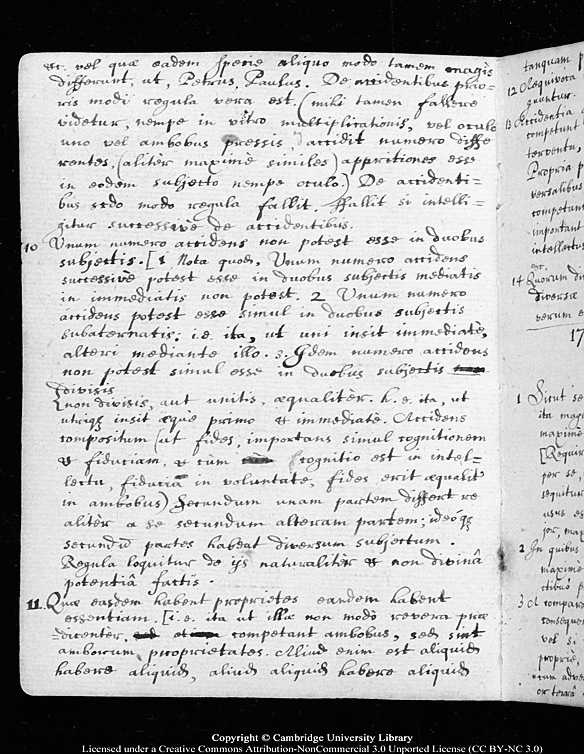 &c. vel quæ eadem specie aliquo modo tamen magis
differunt, ut, Petrus, Paulus. De accidentibus prio-
ris modi regula vera est. (mihi tamen fallere
videtur, nempe in vitro multiplicationis, vel oculo
uno vel ambobus pressis, accidit numero diffe
rentes, (alitèr maximè similes) apparitiones esse
in eodem subjecto nempe oculo.) De accidenti-
bus modo regula fallit. Fallit si intelli-
gitur successivè de accidentibus.
10 Unum numero accidens non potest esse in duobus
subjectis. [1 Nota quod, Unum numero accidens
successivè potest esse in duobus subjectis mediatis
in immediatis non potest. 2. Unum numero
accidens potest esse simul in duobus subjectis
subalternatis: i.e. ita, ut uni insit immediatè,
alteri mediante illo. 3. Idem numero accidens
non potest simul esse in duobus subjectis
divisis
non divisis, aut unitis, æqualitèr. h.e. ita, ut
utriq; insit æque primo & immediatè. Accidens
compositum (ut fides, importans simul cognitionem
& fiduciam, & cùm cognitio est in intel-
lectu, fiducia in voluntate, fides erit æqualitèr
in ambobus) Secundum unam partem differt re
alitèr a se secundum alteram partem; ideóq;
secundū partes habeat diversum subjectum.
Regula loquitur de ijs naturalitèr & non divinâ
potentiâ factis.
11. Quæ easdem habent proprietes eandem habent
essentiam. [i.e. ita ut illæ non modò revera præ
-dicentur, competant ambobus, sed sint
amborum proprietates. Aliud enim est aliquid
habere aliquid, aliud aliquid habere aliquid
tanquam
12 Æquivoca
13 Accidentia
competunt
Propria p
versalibus
competunt
important
intellectus
&c.
14 Quorum
diversæ
verum e
17
1 Sicut se
ita mag
maximè
[Requir
per se,
sequitur
usus es
jor, ma
2 In quibus
maximè
3 A compar
consequen
vel si
propriè,
Copyright © Cambridge University Library
Licensed under a Creative Commons Attribution-NonCommercial 3.0 Unported License (CC BY-NC 3.0)